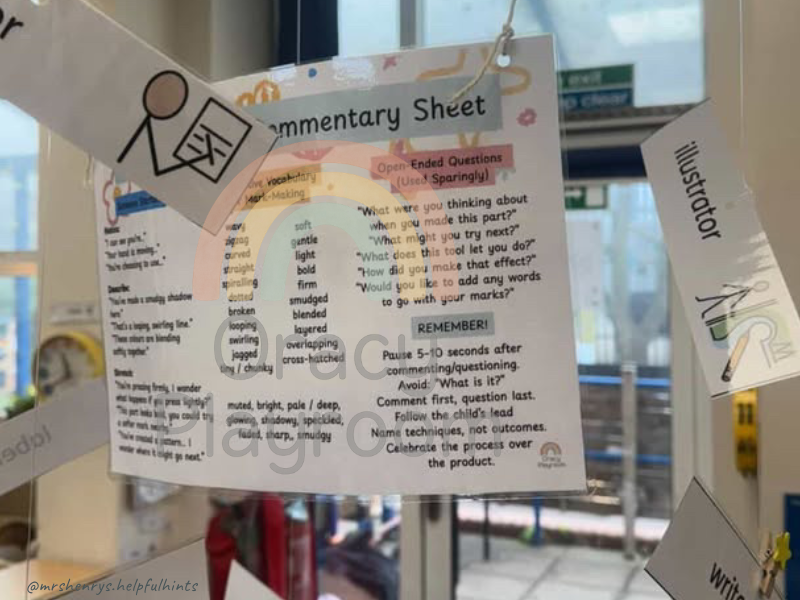 or
ommentary Sheet
Notice:
"I can see you're..."
"Your hand is moving..."
"You're choosing to use..."
Describe:
"You've made a smudgy shadow
here."
"That's a looping, swirling line."
"These colours are blending
softly together."
Stretch:
"You're pressing firmly, I wonder
what happens if you press lightly?"
"This part looks bold, you could try
a softer mark nearby."
"You've created a pattern.. I
wonder where it might go next."
ive Vocabulary
Mark-Making
wavy
zigzag
curved
straight
spiralling
dotted
broken
looping
swirling
jagged
tiny / chunky
soft
gentle
light
bold
firm
smudged
blended
layered
overlapping
cross-hatched
muted, bright, pale / deep,
glowing, shadowy, speckled,
faded, sharp,, smudgy
Open-Ended Questions
(Used Sparingly)
"What were you thinking about
when you made this part?"
"What might you try next?"
"What does this tool let you do?"
"How did you make that effect?"
"Would you like to add any words
to go with your marks?"
REMEMBER!
Pause 5-10 seconds after
commenting/questioning.
Avoid: "What is it?"
Comment first, question last.
Follow the child's lead
Name techniques, not outcomes.
Celebrate the process over
the product.
Oracy
Playroom
Oracy
Playroom
illustrator
label
write
exit
keep clear
@mrshenrys.helpfulhints